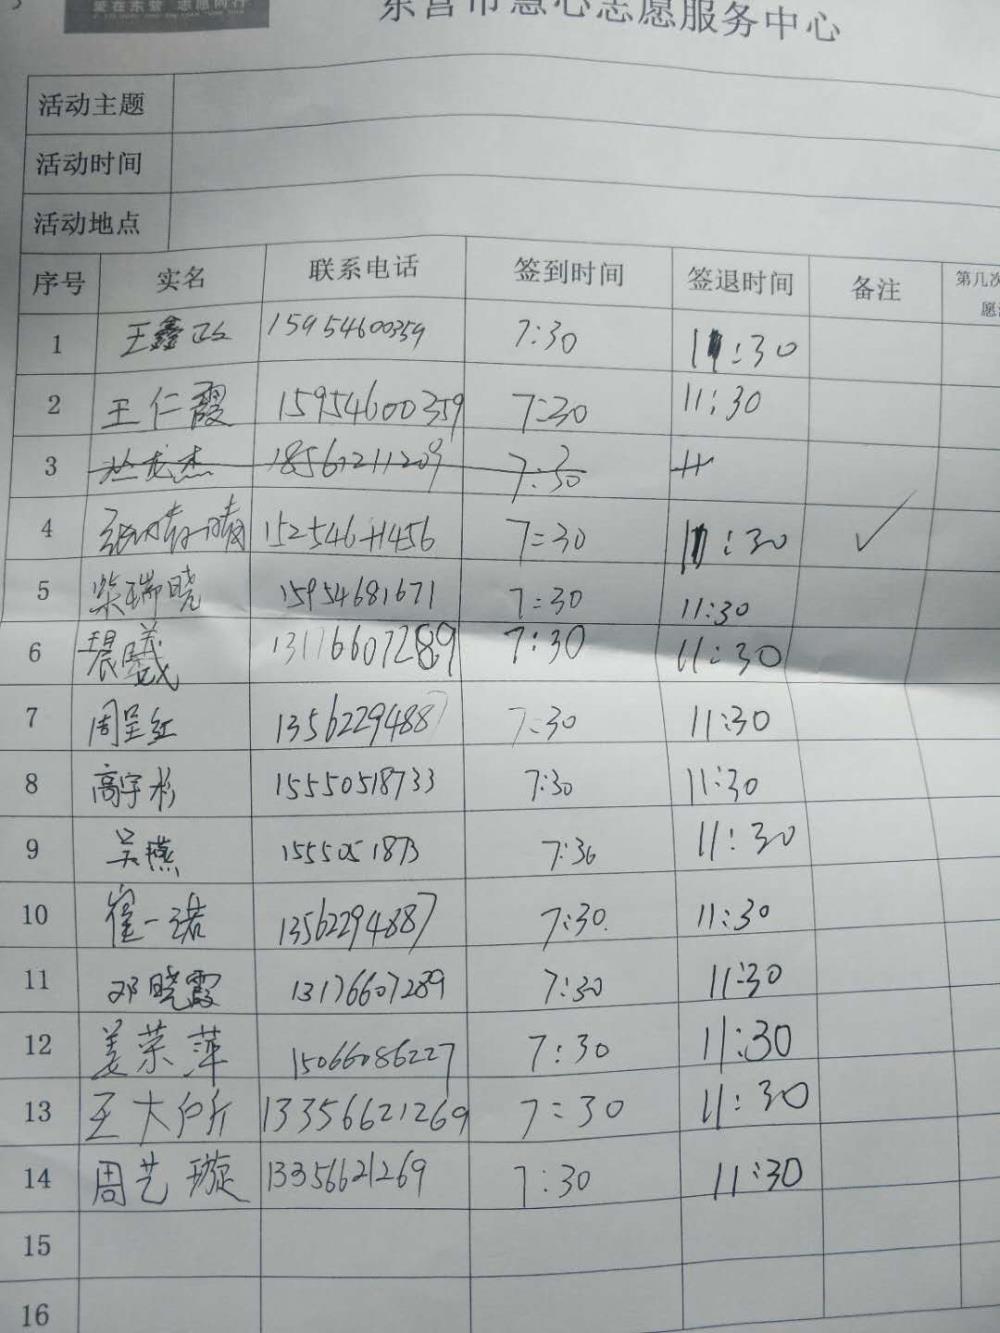 爱在东营 志愿同行
东营市慧心志愿服务中心
活动主题
活动时间
活动地点
序号 实名 联系电话 签到时间 签退时间 备注 第几次
愿
1 王鑫 15954600359 7:30 11:30
2 王仁霞 15954600359 7:30 11:30
3 7:30 11
4 7:30 11:30 ✓
5 柴瑞晓 15954681671 7:30 11:30
6 13176607289 7:30 11:30
7 周呈红 13562294887 7:30 11:30
8 高宇杉 15550518733 7:30 11:30
9 吴燕 1555051873 7:30 11:30
10 崔一诺 13562294887 7:30 11:30
11 邓晓霞 13176607289 7:30 11:30
12 姜荣萍 15066086227 7:30 11:30
13 王大 13356621269 7:30 11:30
14 周艺璇 13356621269 7:30 11:30
15
16